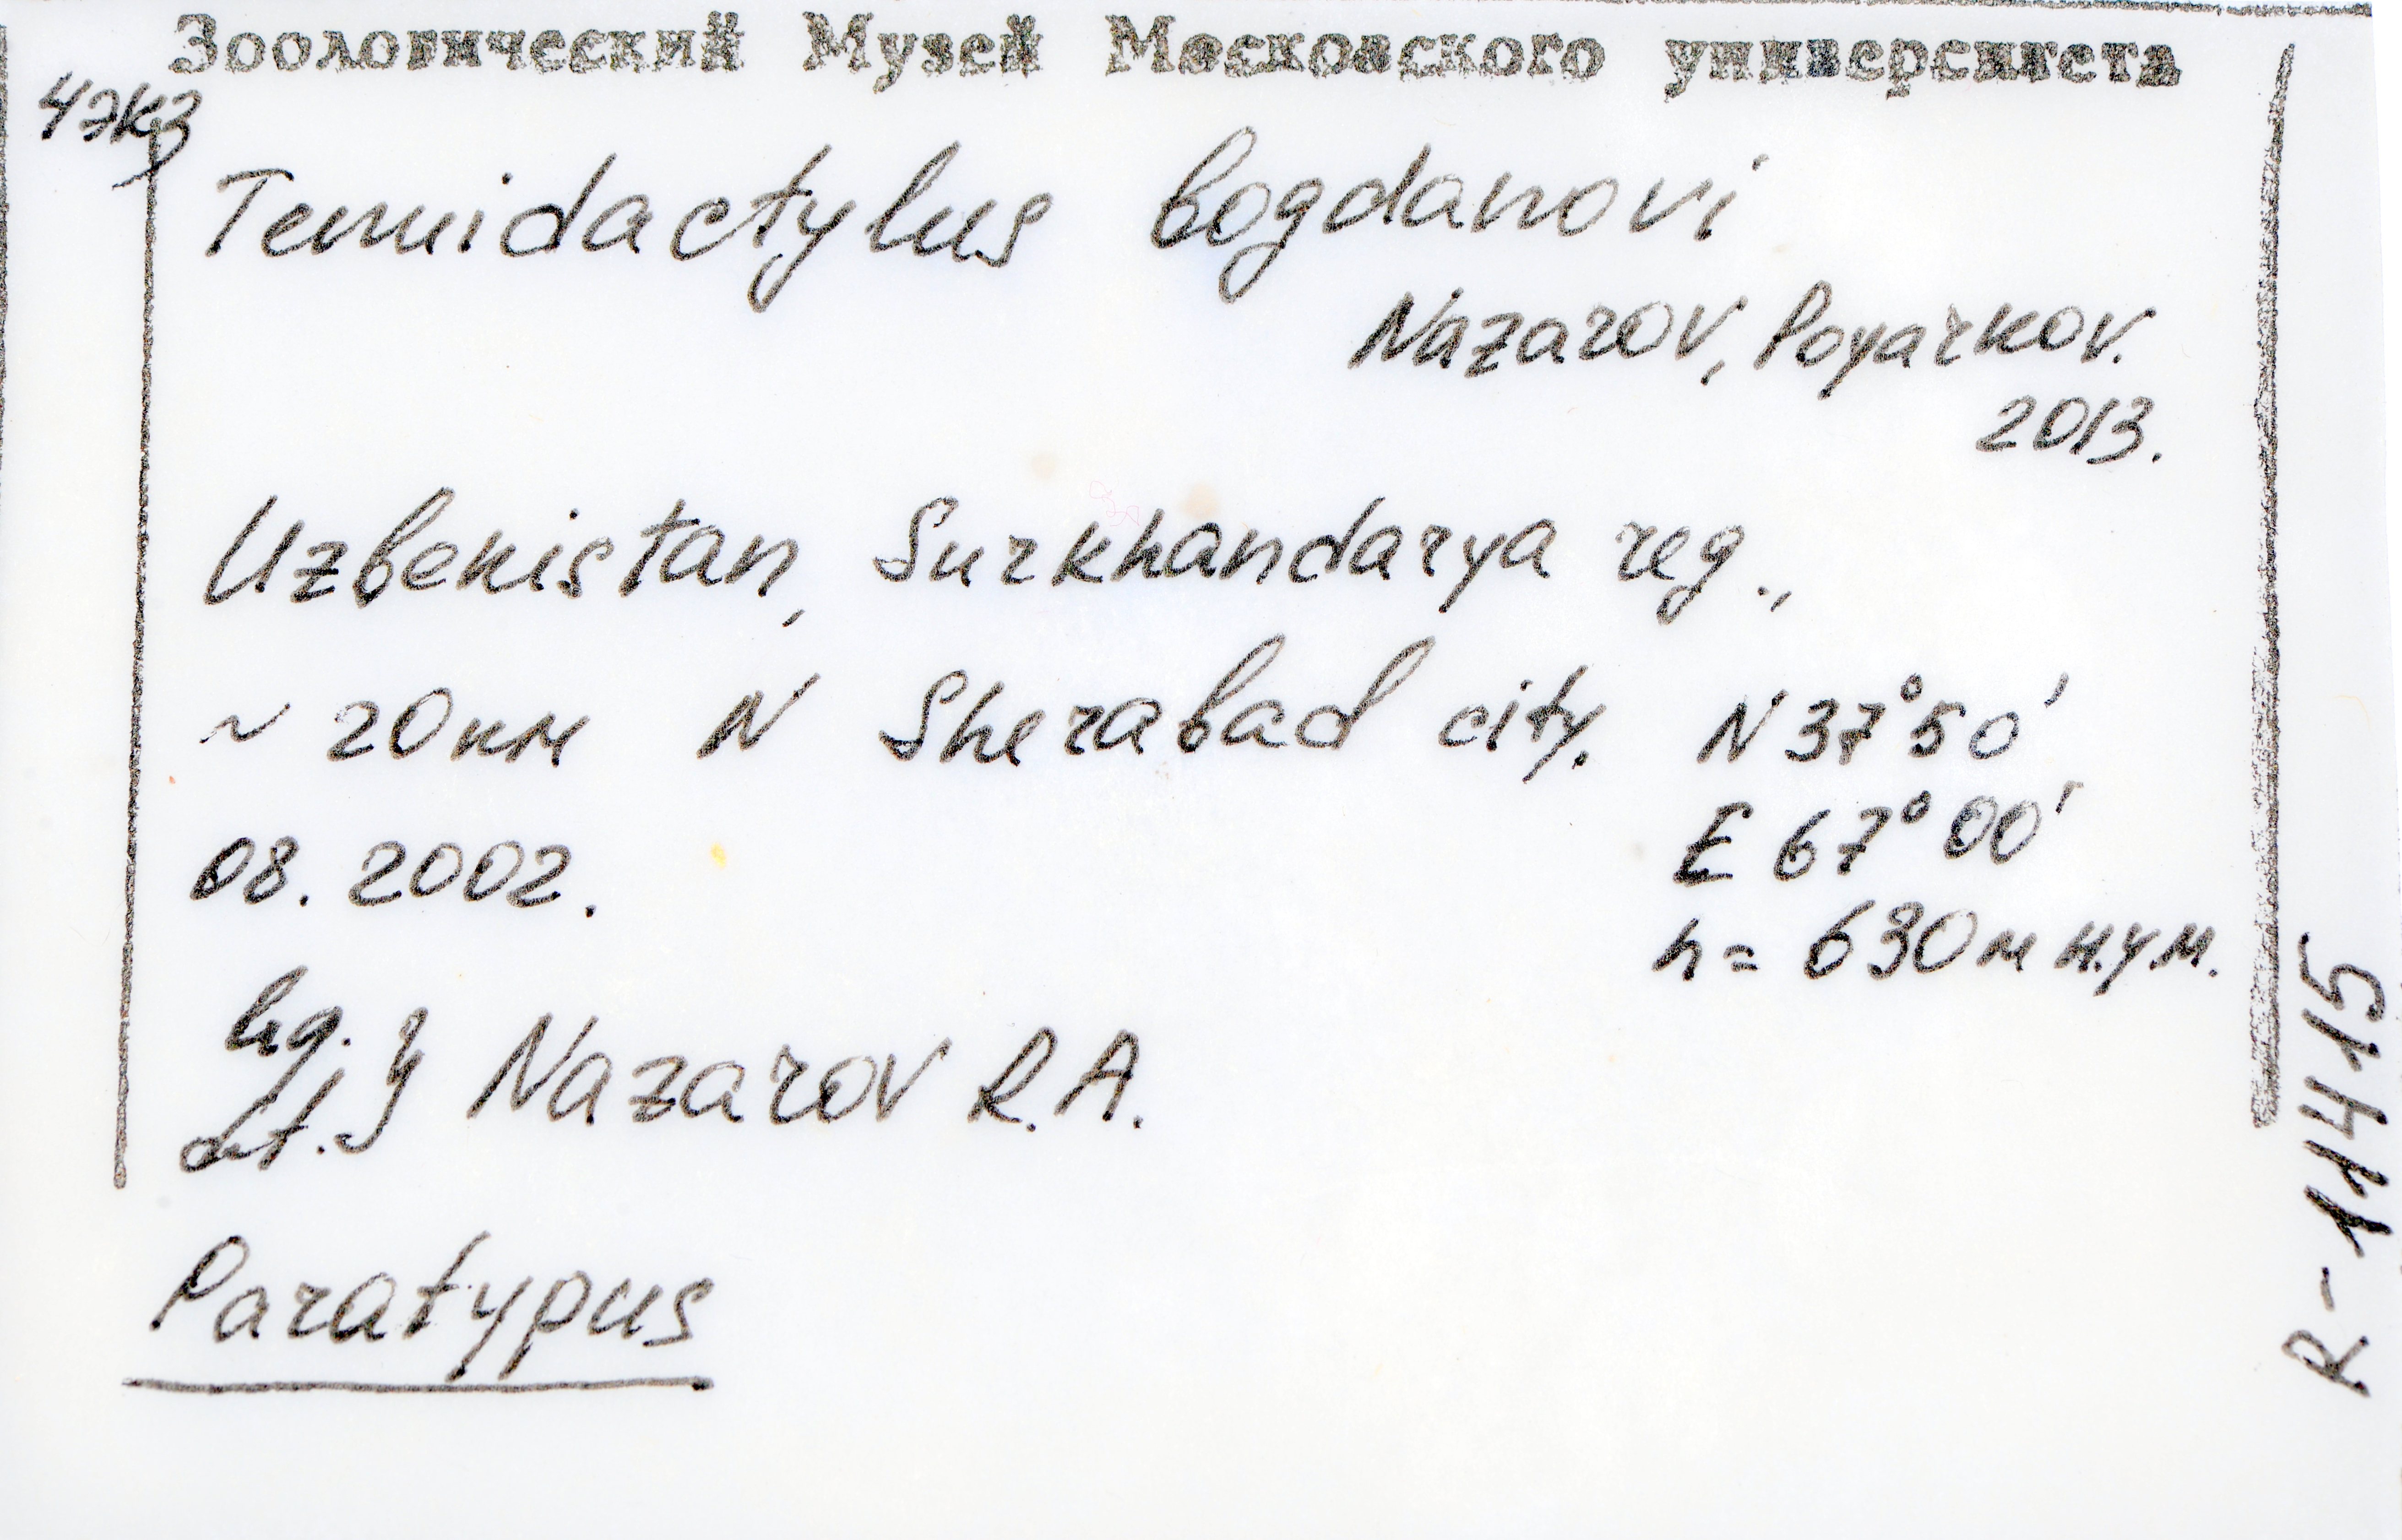 Зоологический Музей Московского университета
4 экз
Tenuidactylus bogdanovi
Nazarov, Poyarkov.
2013.
Uzbekistan, Surkhandarya reg.,
~ 20км N Sherabad city. N 37°50',
E 67°00'
08. 2002.
h = 630м н.у.м.
leg.
det. } Nazarov R.A.
Paratypus
R-11415